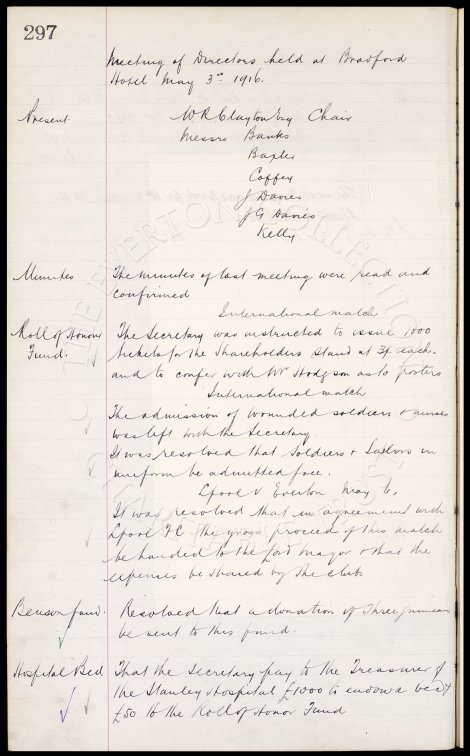 297
Meeting of Directors held at Bradford
Hotel May 3rd 1916.
Present W R Clayton Esq Chair
Messrs Banks
Baxter
Coffey
J Davies
J G Davies
Kelly
Minutes The minutes of last meeting were read and
confirmed
International match
Roll of Honour The Secretary was instructed to issue 1000
Fund. tickets for the Shareholders Stand at each.
and to confer with Mr Hodgson as to posters
International match
The admission of wounded soldiers & nurses
was left with the Secretary
It was resolved that Soldiers & Sailors in
uniform be admitted free.
Lpool v Everton May 6.
It was resolved that in agreement with
Lpool FC the gross proceeds of this match
be handed to the Lord Mayor & that the
expenses be shared by the clubs
Benson fund. Resolved that a donation of Three guineas
be sent to this fund.
Hospital Bed That the Secretary pay to the Treasurer of
the Stanley Hospital £1000 to endow a bed &
£50 to the Roll of Honor Fund
THE EVERTON COLLECTION